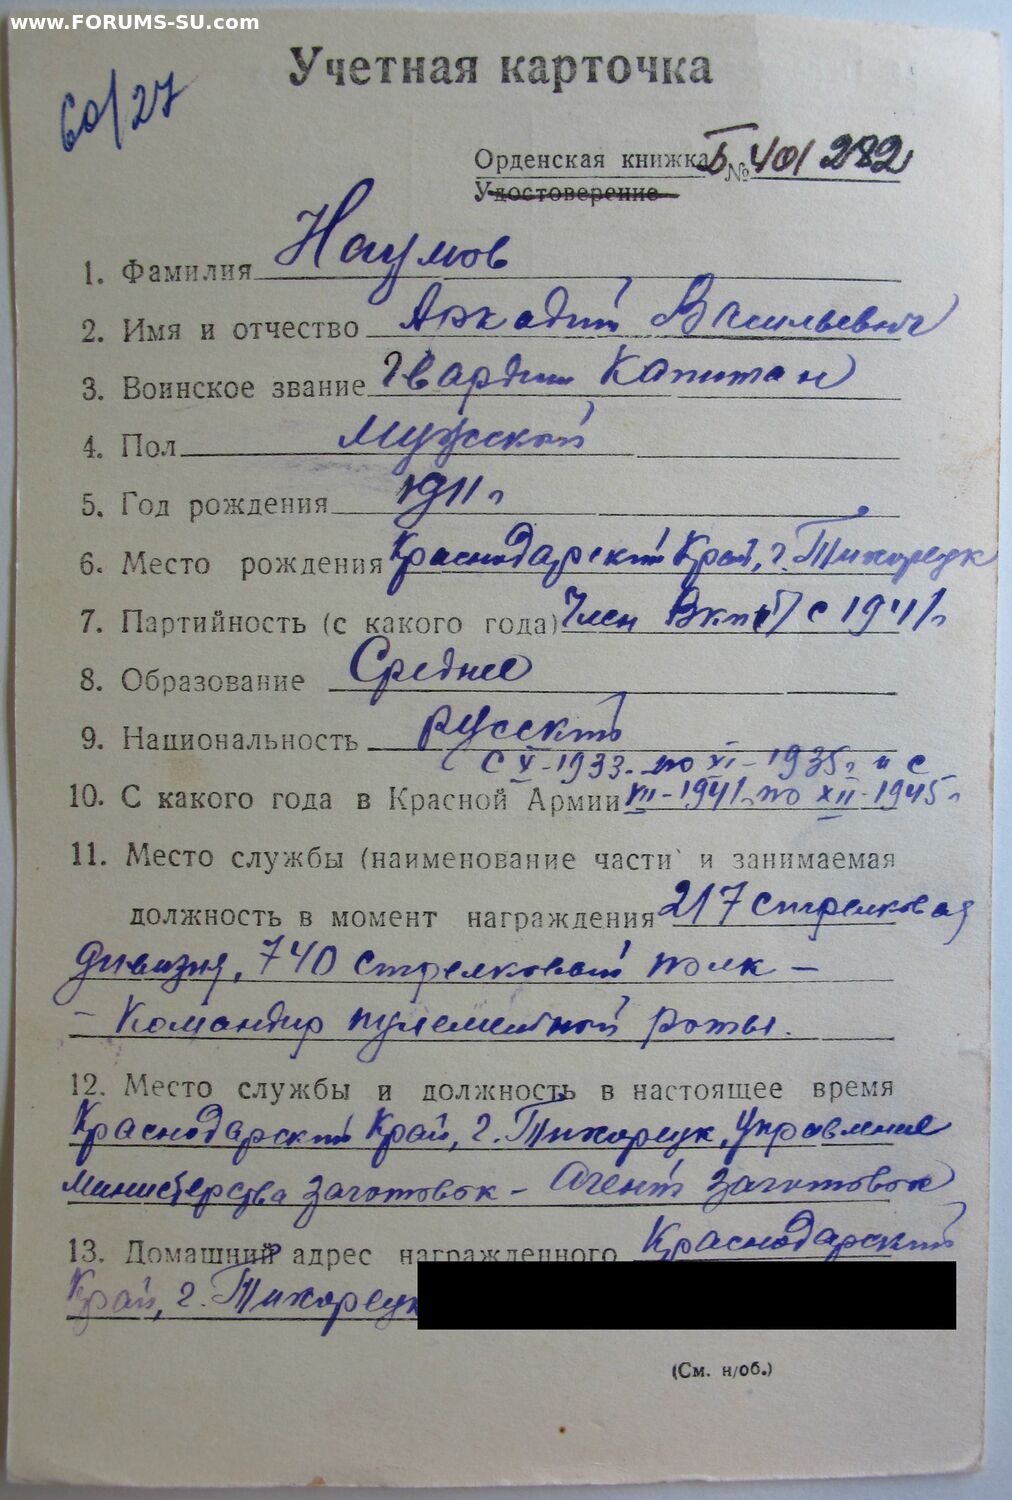 www.FORUMS-SU.com
60/27
Учетная карточка
Орденская книжка Б № 401282
Удостоверение
1. Фамилия Наумов
2. Имя и отчество Аркадий Васильевич
3. Воинское звание Гвардии Капитан
4. Пол мужской
5. Год рождения 1911 г
6. Место рождения Краснодарский Край, г. Тихорецк
7. Партийность (с какого года) Член ВКП(б) с 1941 г
8. Образование Среднее
9. Национальность русский
с X-1933. по XI-1935 г и с
10. С какого года в Красной Армии VIII-1941 г. по XII-1945 г
11. Место службы (наименование части и занимаемая
должность в момент награждения 217 стрелковая
дивизия, 740 стрелковый полк –
– Командир пулеметной роты.
12. Место службы и должность в настоящее время
Краснодарский Край, г. Тихорецк, Управление
Министерства заготовок – Агент заготовок
13. Домашний адрес награжденного Краснодарский
Край, г. Тихорецк
(См. н/об.)